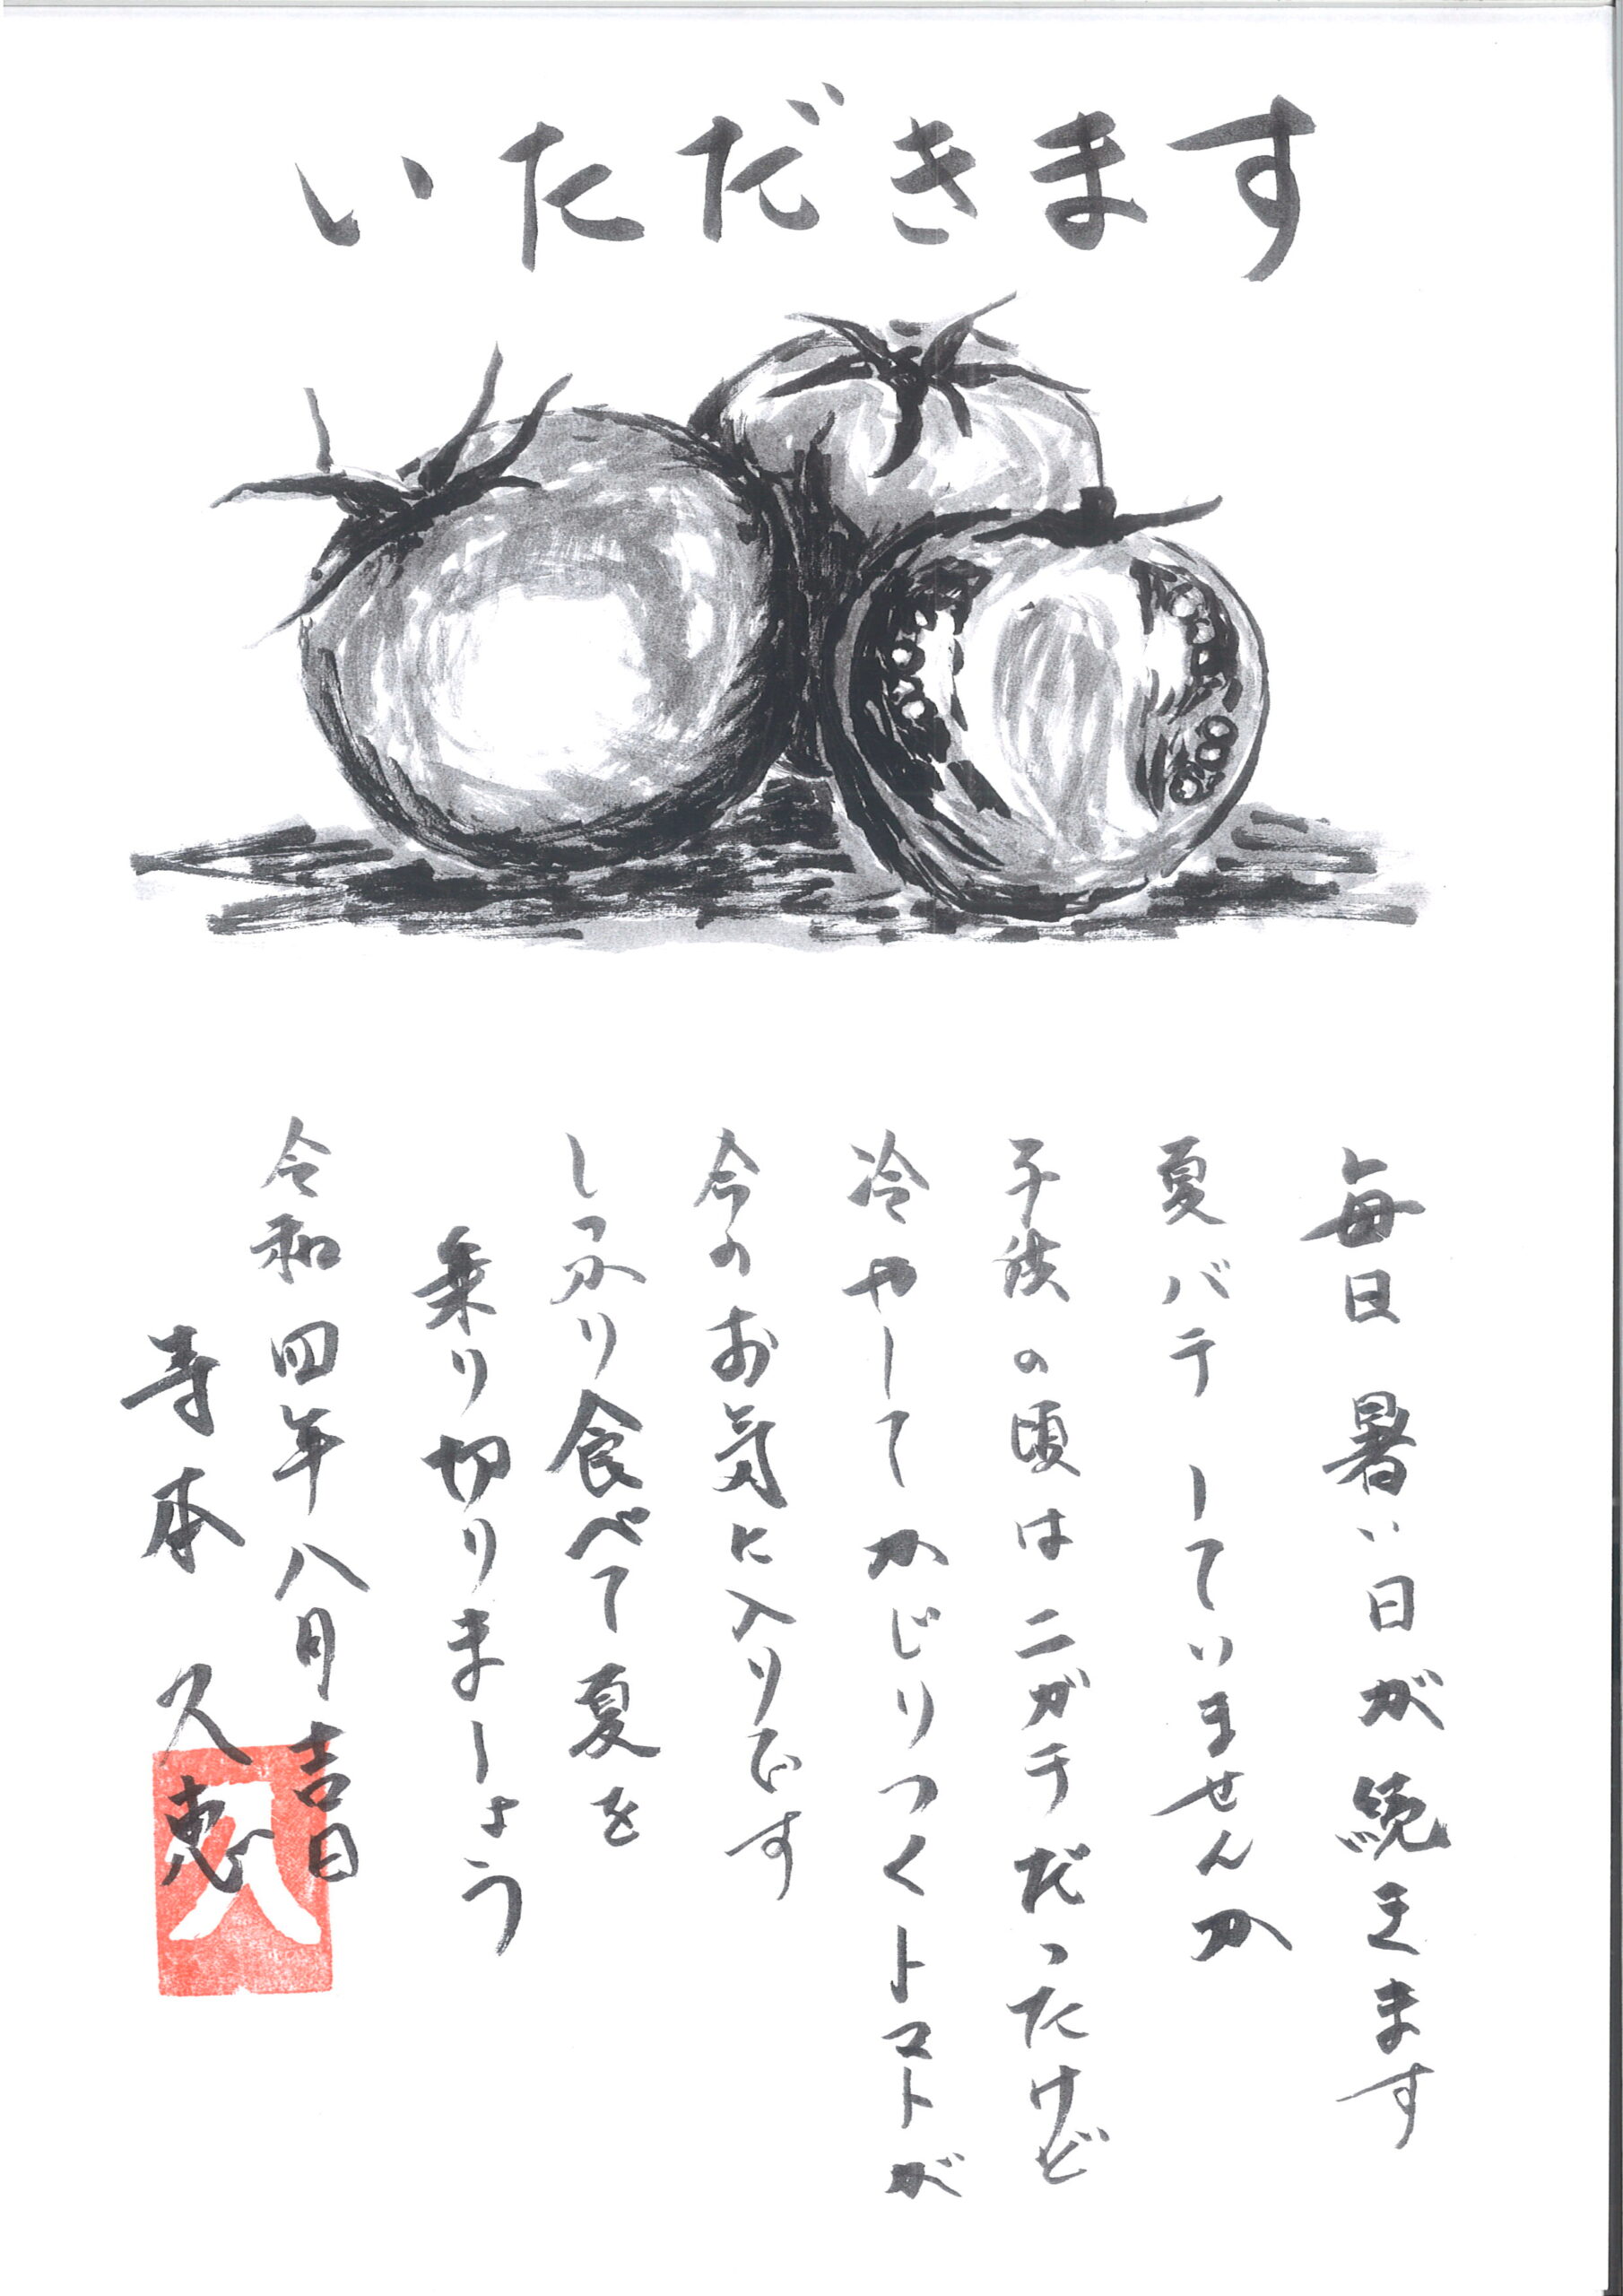 いただきます
毎日 暑い日が続きます
夏バテしていませんか
子供の頃はニガテだったけど
冷やしてかじりつくトマトが
今のお気に入りです
しっかり食べて夏を
乗り切りましょう
令和四年八月吉日
寺本 久恵
久